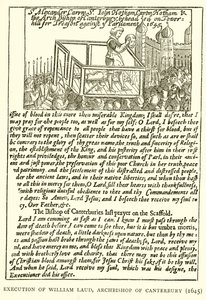 Sr Alexander Carew, Sr John Hotham, Captin Hotham &
the Arch Bishop of Canterbury, beheaded on Tower
hill for Treason against y Parliament 1645
effusion of blood in this more then miserable Kingdom; I shall desire, that I
may pray for the people too, as well as for my self; O Lord, I beseech thee
give grace of repentance to all people that have a thirst for blood, but if
they will not repent, then scatter their devices so, and such as are or shall
be contrary to the glory of thy great name, the truth and sincerity of Religi-
on, the establishment of the King, and his posterity after him in their just
rights and priviledges, the honour and conservation of Parl. in their ancient
and just power, the preservation of this poor Church in her truth,
peace and patrimony, and the settlement of this distracted and distressed people,
under the ancient laws, and in their native liberties; and when thou hast
done all this in mercy for them, O Lord fill their hearts with thankfulness,
and with religious dutiful obedience to thee and thy Commandements all
their dayes: So Amen, Lord Jesus, and I beseech thee receive my soul to
mercy. Our Father, &c.
The Bishop of Canterburies last prayer on the Scaffold.
Lord I am coming as fast as I can, I know I must pass through the
shadow of death before I can come to see thee, but it is but umbra mortis,
a meer shadow of death, a little darkness upon nature; but thou by thy me-
rits and passion hast broke through the jaws of death; so, Lord, receive my
soul, and have mercy on me, and bless this Kingdom with peace and plenty,
and with brotherly love and charity, that there may not be this effusion
of Christian blood amongst them, for Jesus Christ his sake, if it be thy will.
And when he said, Lord receive my soul, which was his signe, the
Executioner did his office.
EXECUTION OF WILLIAM LAUD, ARCHBISHOP OF CANTERBURY (1645)